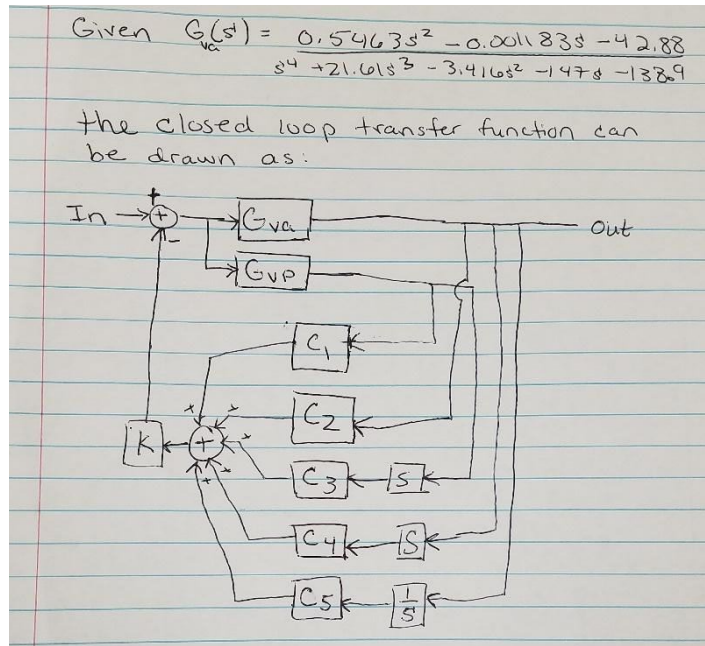 Given G(s) = 0.5463s² - 0.001183s - 42.88
va
s⁴ + 21.61s³ - 3.416s² - 147s - 138.9
the closed loop transfer function can
be drawn as:
+
In + Gva Out
-
Gvp
C1
+ + C2
K + + C3 S
+ C4 S
+ C5 1/s